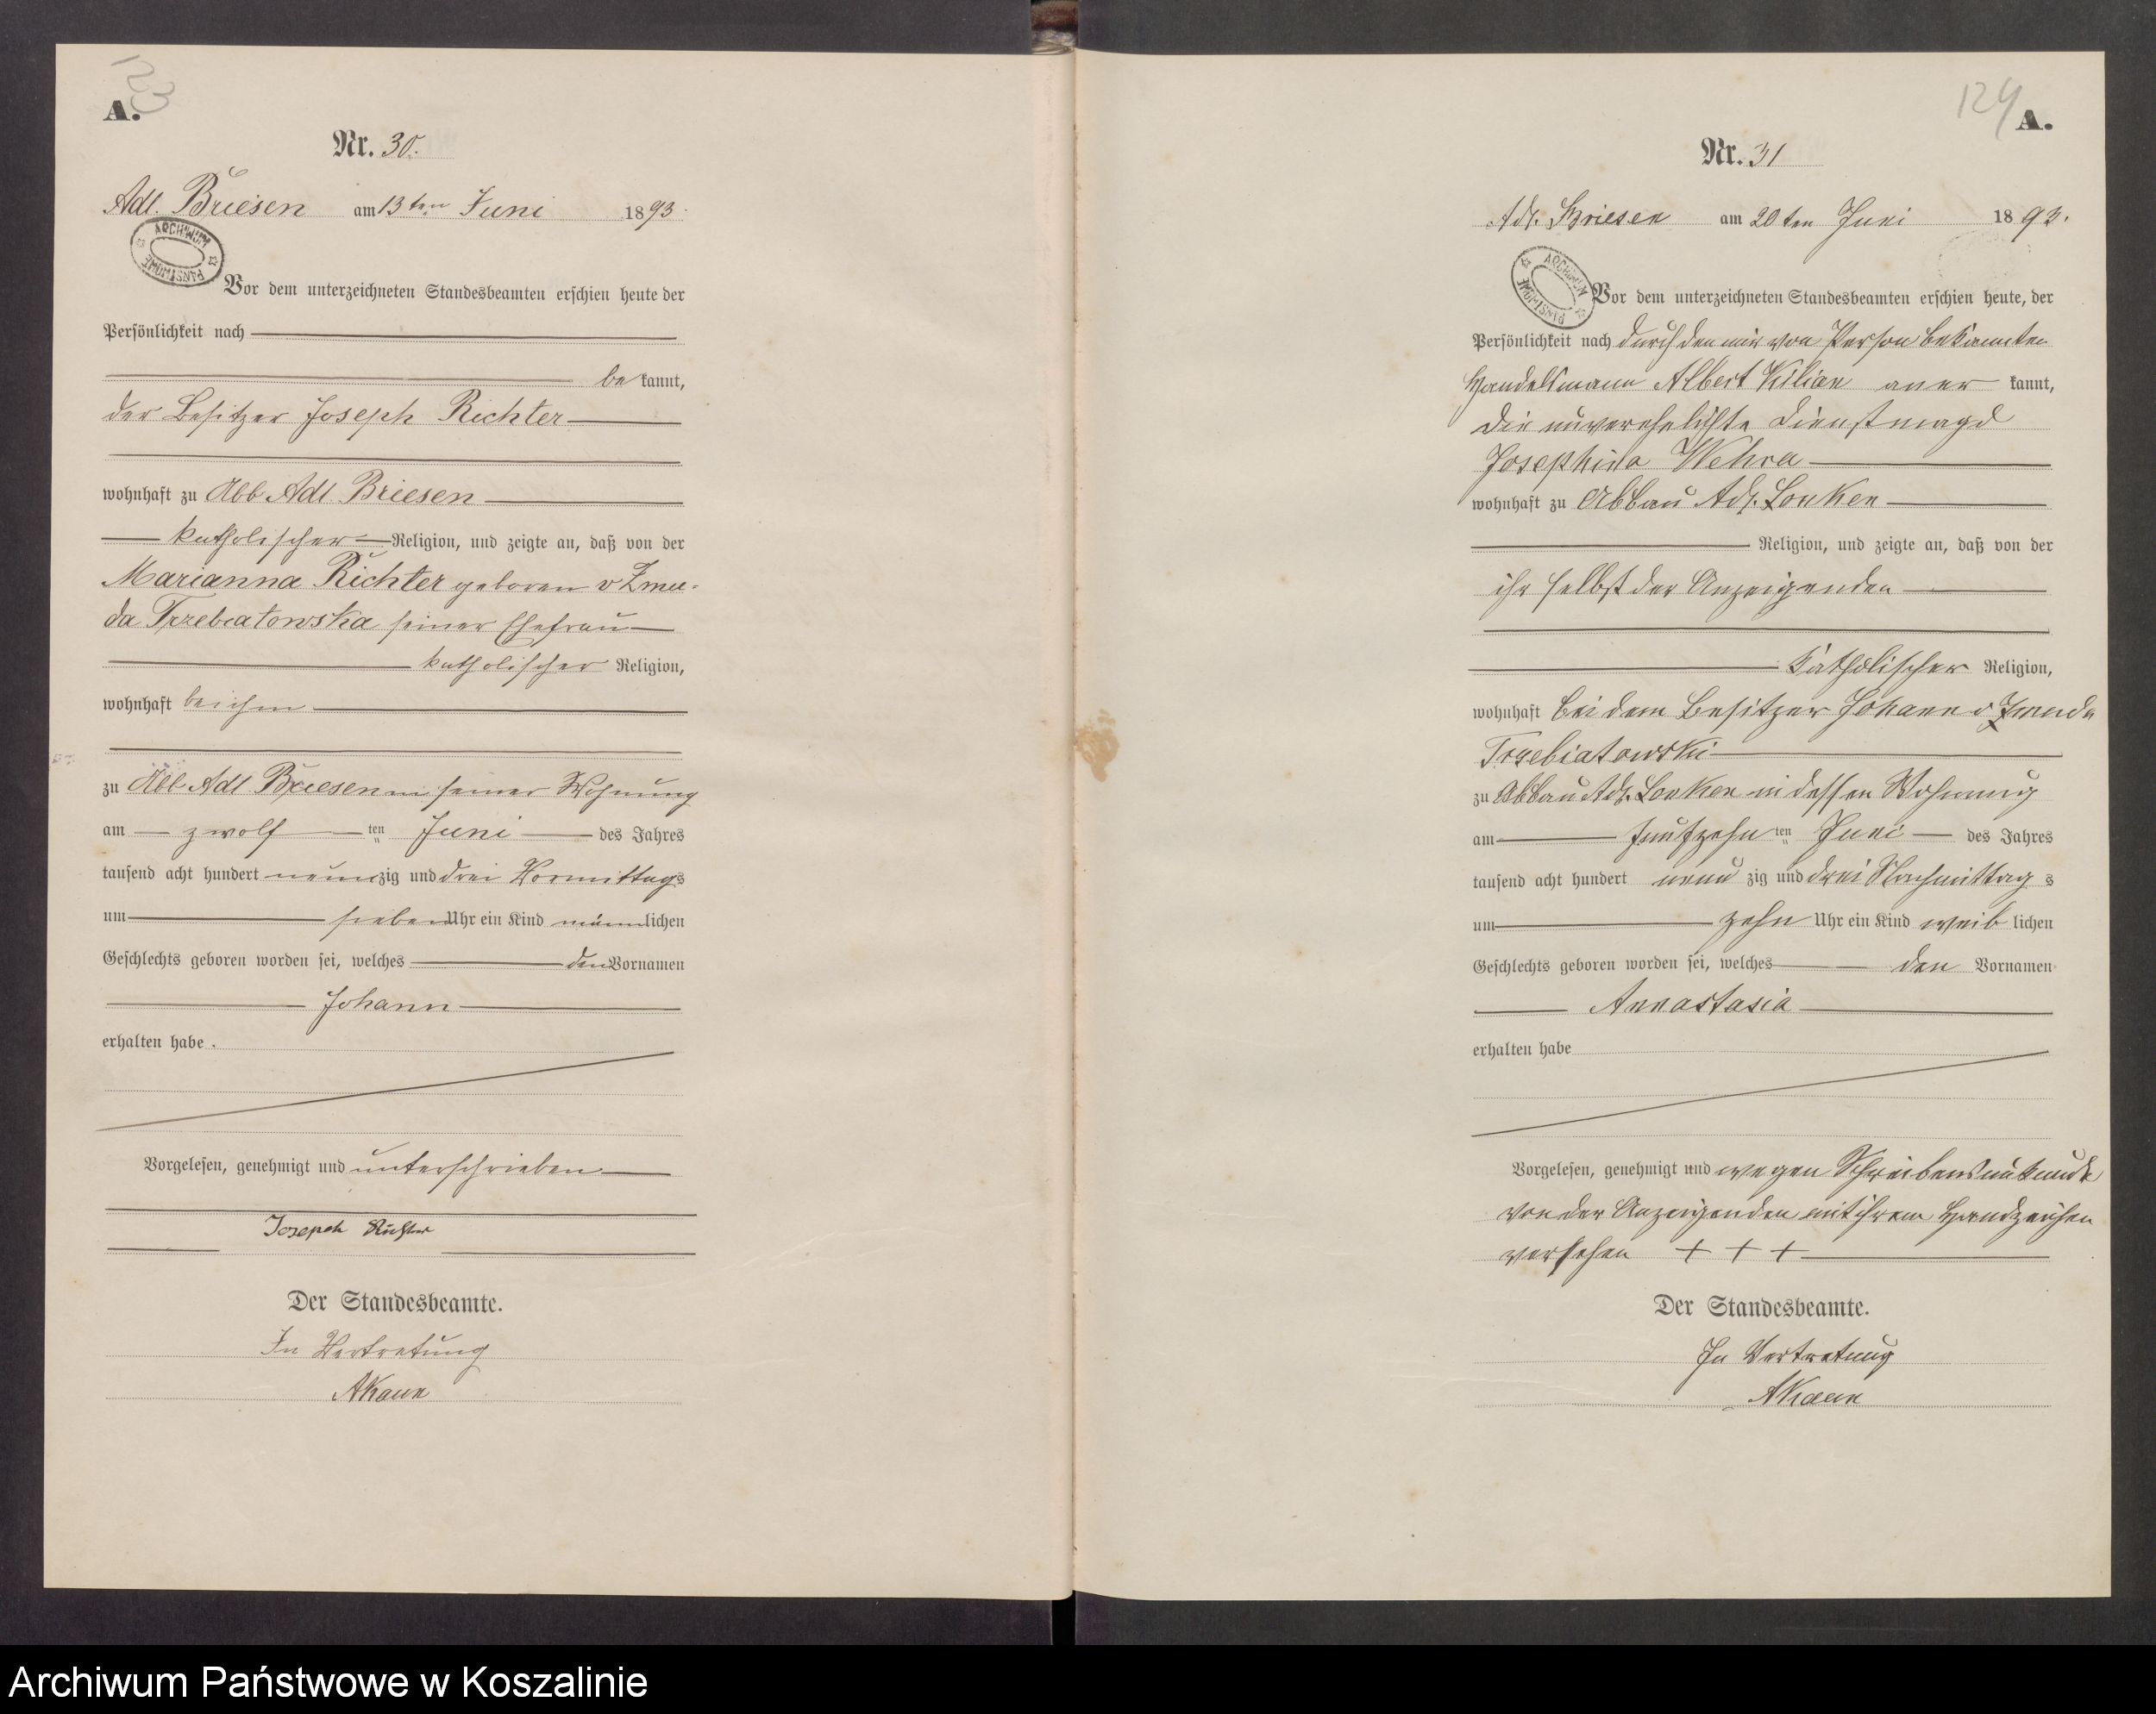 123
A.
Nr. 30.
Adl. Briesen am 13ten Juni 1893.
ARCHIWUM PAŃSTWOWE
Vor dem unterzeichneten Standesbeamten erschien heute der
Persönlichkeit nach
be kannt,
der Besitzer Joseph Richter
wohnhaft zu Abb Adl Briesen
katholischer Religion, und zeigte an, daß von der
Marianna Richter geboren v Zmu-
da Trzebiatowska seiner Ehefrau
katholischer Religion,
wohnhaft bei ihm
zu Abb Adl Briesen in seiner Wohnung
am zwölf ten Juni des Jahres
tausend acht hundert neunzig und drei Vormittags
um sieben Uhr ein Kind männlichen
Geschlechts geboren worden sei, welches den Vornamen
Johann
erhalten habe.
Vorgelesen, genehmigt und unterschrieben
Joseph Richter
Der Standesbeamte.
In Vertretung
124
A.
Nr. 31
Adl. Briesen am 20ten Juni 1893.
ARCHIWUM PAŃSTWOWE
Vor dem unterzeichneten Standesbeamten erschien heute, der
Persönlichkeit nach durch den mir von Person bekannten
Handelsmann Albert Kilian aner kannt,
die unverehelichte Dienstmagd
Josephina
wohnhaft zu Abbau Adl. Lonken
Religion, und zeigte an, daß von der
ihr selbst der Anzeigenden
katholischer Religion,
wohnhaft bei dem Besitzer Johann v Zmuda
Trzebiatowski
zu Abbau Adl. Lonken in dessen Wohnung
am fünfzehn ten Juni des Jahres
tausend acht hundert neun zig und drei Nachmittag s
um zehn Uhr ein Kind weib lichen
Geschlechts geboren worden sei, welches den Vornamen
Annastasia
erhalten habe
Vorgelesen, genehmigt und wegen Schreibensunkunde
von der Anzeigenden mit ihrem Handzeichen
versehen + + +
Der Standesbeamte.
In Vertretung
Archiwum Państwowe w Koszalinie